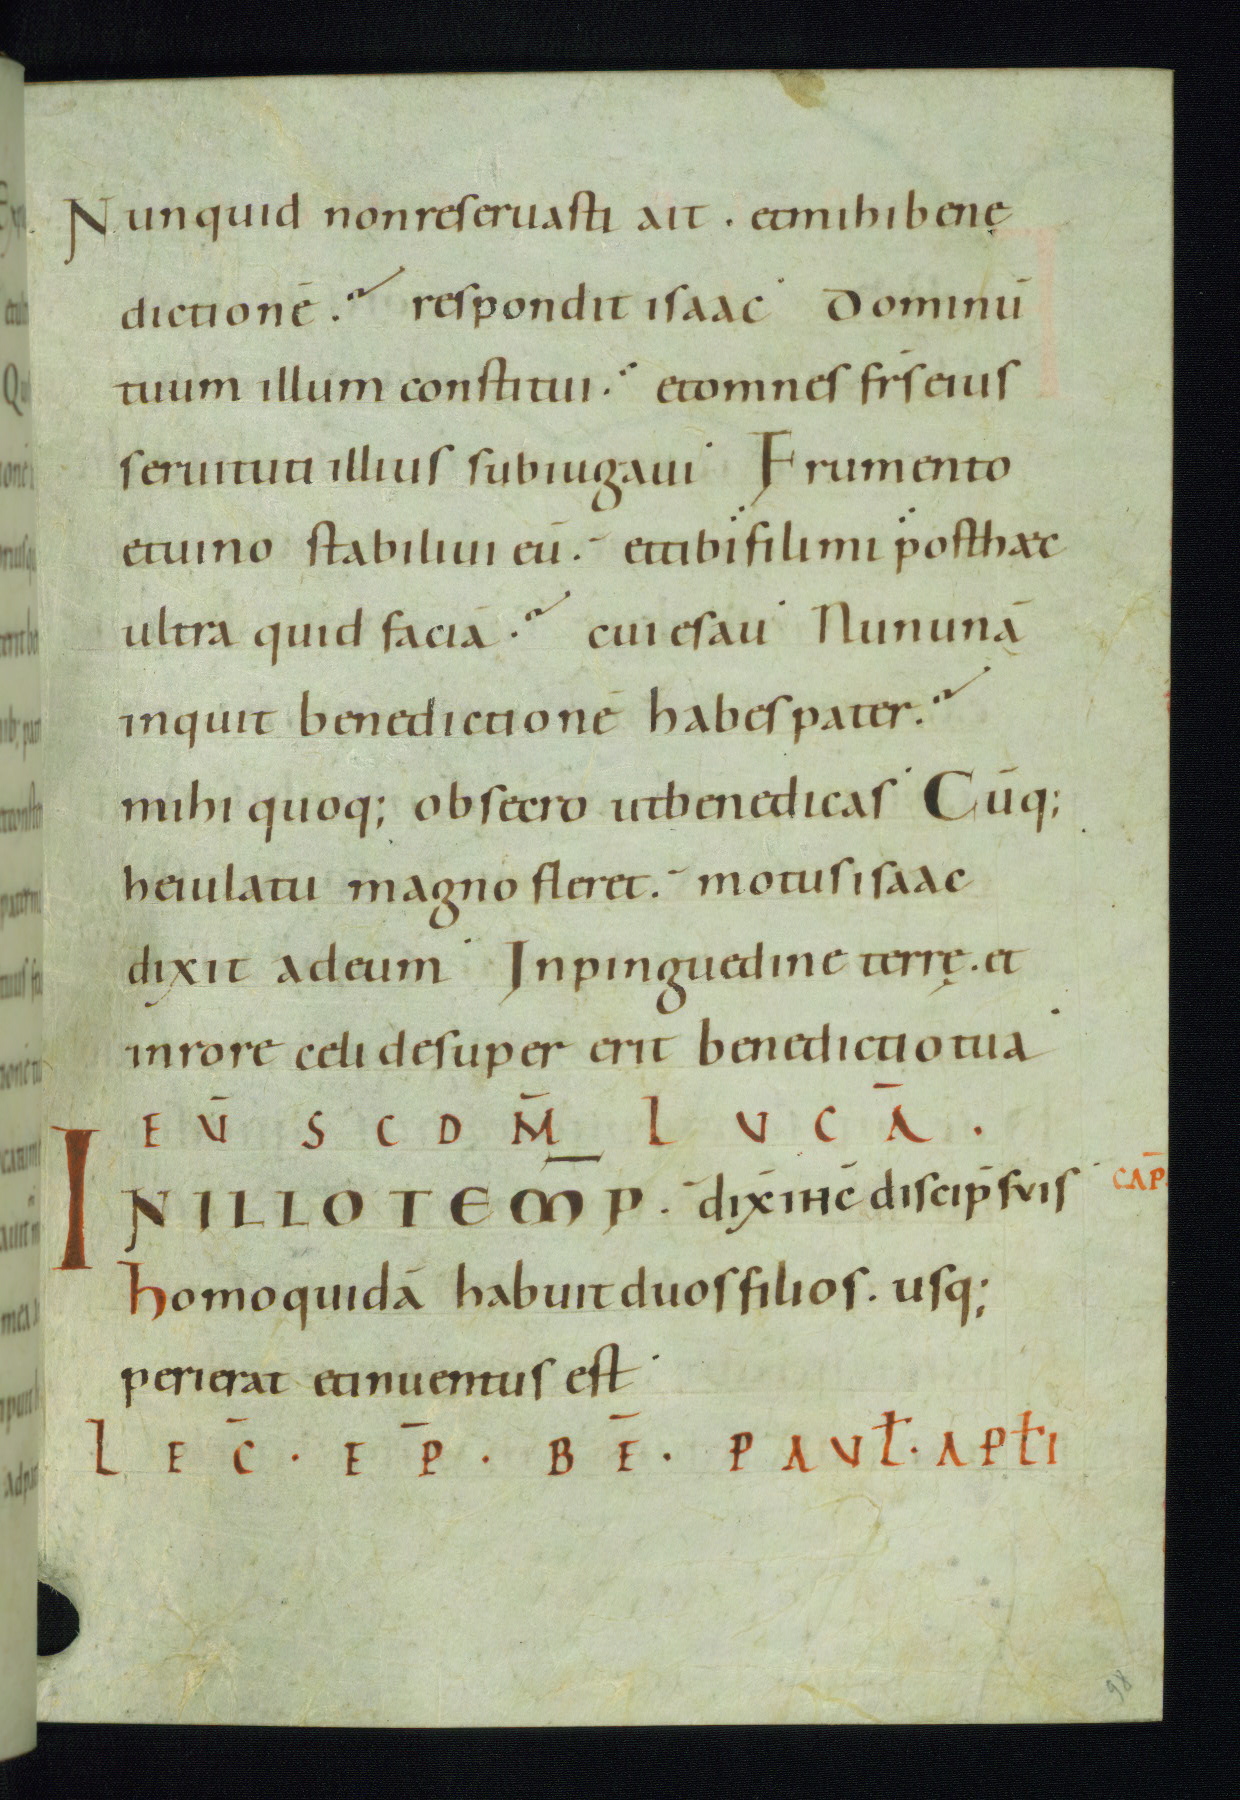 Nunquid non reseruasti ait . et mihi benę
dictionē . respondit isaac · Dominū
tuum illum constitui . et omnes frs̄ eius
seruituti illius subiugaui · Frumento
et uino stabiliui eū . et tibi fili mi post hæc
ultra quid faciā . cui esau · Nununā
inquit benedictionē habes pater .
mihi quoq; obsecro ut benedicas · Cūq;
heiulatu magno fleret . motus isaac
dixit ad eum · In pinguedine terrę . et
in rore celi desuper erit benedictio tua ·
EṼ SCDM̄ LVCĀ .
IN ILLO TEMP̄ . dix̄ ihc̄ discip̄ suis · CAP̄
homo quidā habuit duos filios . usq;
perierat et inuentus est ·
LEC̄ . EP̄ . BĒ . PAVꝉ . APꝉI
98